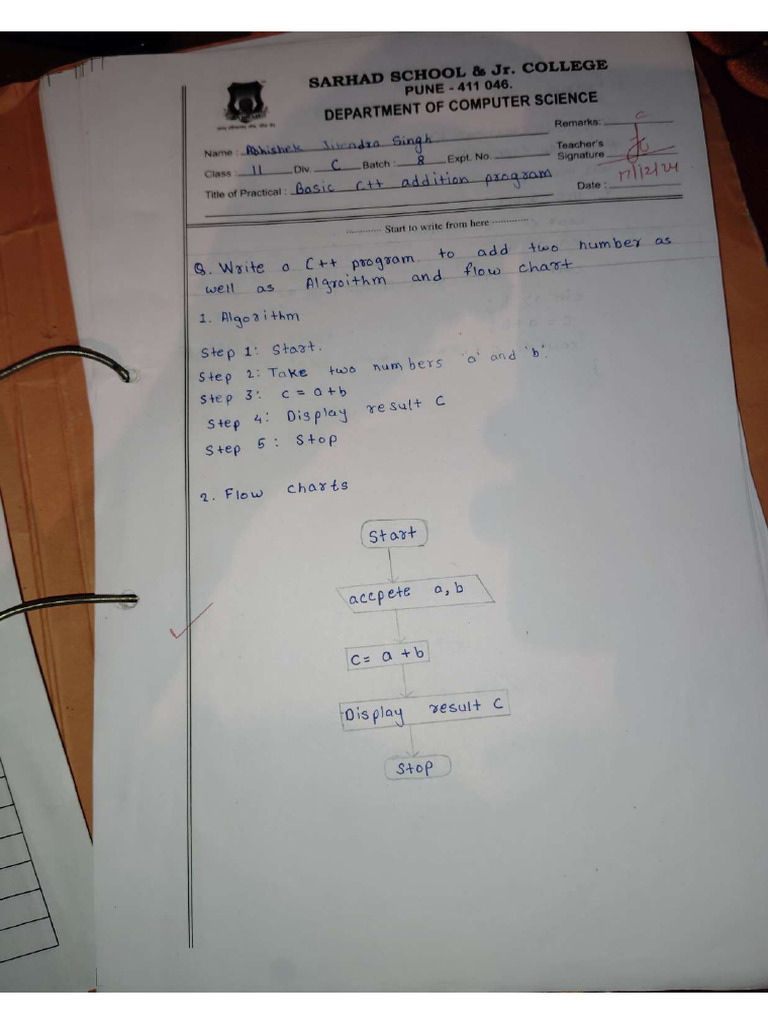 SARHAD SCHOOL & Jr. COLLEGE
PUNE - 411 046.
DEPARTMENT OF COMPUTER SCIENCE
Remarks: C
Name : Abhishek Jitendra Singh
Teacher's
Signature
Class : 11 Div. C Batch : 8 Expt. No.
Title of Practical : Basic C++ addition program
Date : 17/12/24
Start to write from here
Q. Write a C++ program to add two number as
well as Algroithm and flow chart
1. Algorithm
Step 1: Start.
Step 2: Take two numbers 'a' and 'b'.
Step 3: c = a+b
Step 4: Display result C
Step 5: Stop
2. Flow charts
Start
accpete a, b
c= a + b
Display result C
Stop